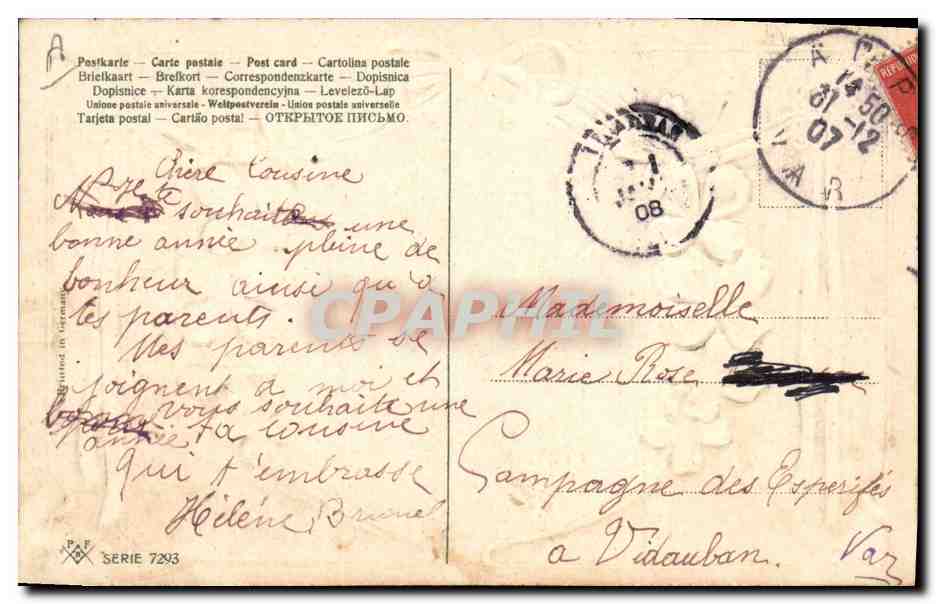 A
Postkarte — Carte postale — Post card — Cartolina postale
Briefkaart — Brefkort — Correspondenzkarte — Dopisnica
Dopisnice — Karta korespondencyjna — Levelező-Lap
Unione postale universale - Weltpostverein - Union postale universelle
Tarjeta postal — Cartão postal — ОТКРЫТОЕ ПИСЬМО.
Chère Cousine
Je te souhaite une
bonne année pleine de
bonheur ainsi qu'à
tes parents.
Mes parents se
joignent a moi et
vous souhaite une
année ta cousine
qui t'embrasse
Hélène
Printed in Germany
PFB
SERIE 7293
14 50
31-12
07
VAR
08
Mademoiselle
Marie Rose
Campagne des Esperifés
a Vidauban. Var
CPAPHIL